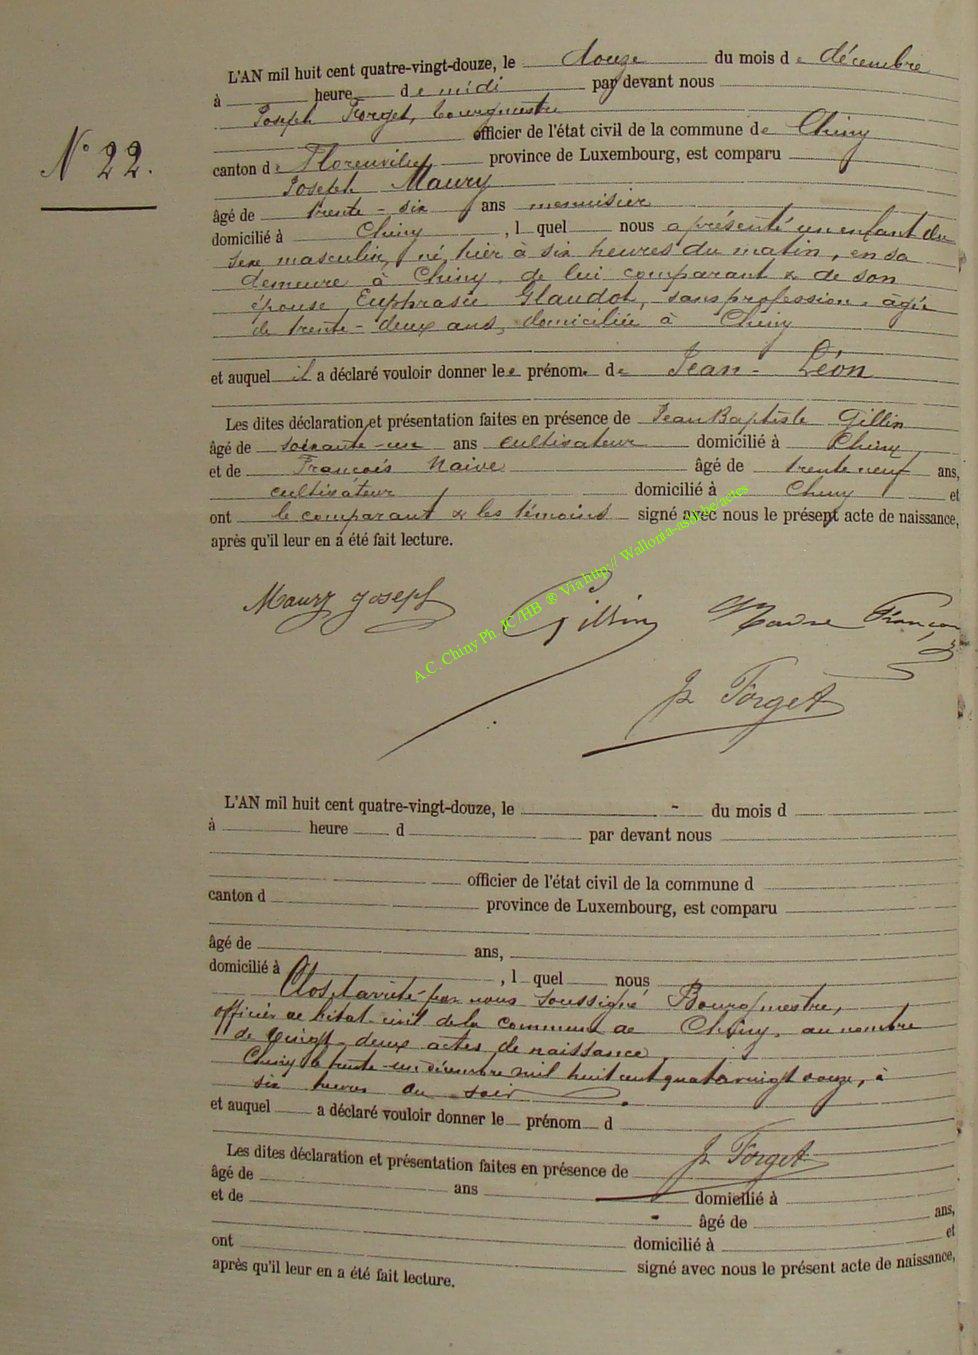 N° 22.
L'AN mil huit cent quatre-vingt-douze, le douze du mois de décembre
à heure de midi par devant nous
Joseph Forget, bourgmestre
officier de l'état civil de la commune de Chiny
canton de Florenville province de Luxembourg, est comparu
Joseph Maury
âgé de trente-six ans menuisier
domicilié à Chiny, l quel nous a présenté un enfant du
sexe masculin, né hier à six heures du matin, en sa
demeure à Chiny de lui comparant & de son
épouse Euphrasie Glaudot, sans profession, âgée
de trente-deux ans, domiciliée à Chiny
et auquel il a déclaré vouloir donner les prénoms de Jean-Léon
Les dites déclaration et présentation faites en présence de Jean Baptiste Gillin
âgé de soixante-un ans cultivateur domicilié à Chiny
et de François Naive âgé de trente neuf ans,
cultivateur domicilié à Chiny et
ont le comparant & les témoins signé avec nous le présent acte de naissance,
après qu'il leur en a été fait lecture.
Maury Joseph Gillin François
J. Forget
A.C. Chiny Ph. JC/HB ® Via http:// Wallonia-asbl.be/actes
L'AN mil huit cent quatre-vingt-douze, le du mois d
à heure d par devant nous
officier de l'état civil de la commune d
canton d province de Luxembourg, est comparu
âgé de ans,
domicilié à , l quel nous
Clos et arrêté par nous soussigné Bourgmestre,
officier de l'état civil de la commune de Chiny, au nombre
de vingt-deux actes de naissance,
Chiny le trente-un décembre mil huit cent quatrevingt douze, à
six heures du soir.
et auquel a déclaré vouloir donner le prénom d
Les dites déclaration et présentation faites en présence de J. Forget
âgé de ans domicilié à
et de âgé de ans,
domicilié à et
ont signé avec nous le présent acte de naissance,
après qu'il leur en a été fait lecture.